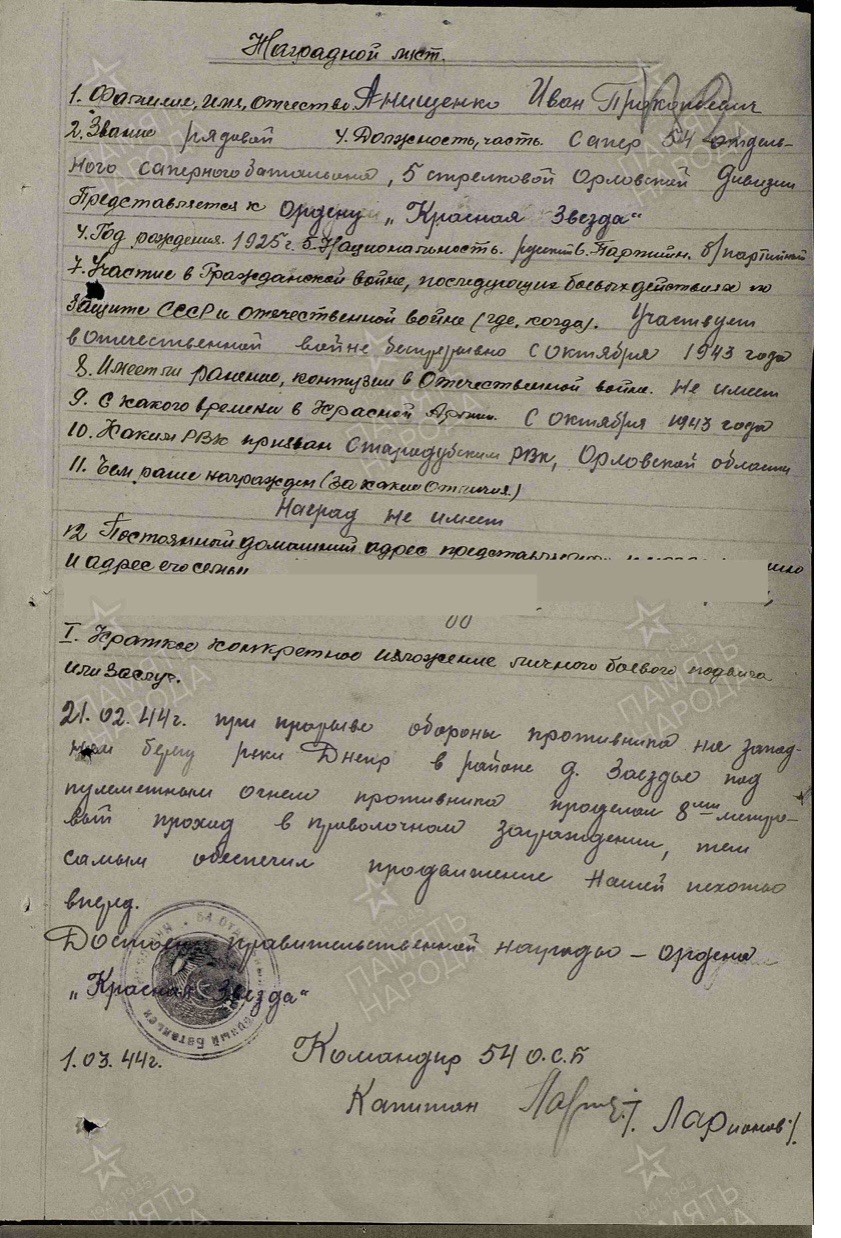 Наградной лист.
1. Фамилие, имя, отчество Анищенко Иван Прокопович
2. Звание рядовой 4. Должность, часть. Сапер 54 отдель-
ного саперного батальона, 5 стрелковой Орловской дивизии
Представляется к Ордену „Красная Звезда“
4. Год рождения. 1925 г. 5. Национальность. русский 6. Партийн. б/партийный
7. Участие в Гражданской войне, последующих боевых действиях по
защите СССР и отечественной войне (где, когда). Участвует
в отечественной войне беспрерывно с октября 1943 года
8. Имеет ли ранение, контузии в Отечественной войне. Не имеет
9. С какого времени в Красной Армии. С октября 1943 года
10. Каким РВК призван Стародубским РВК, Орловской области
11. Чем раньше награжден (за какие отличия)
Наград не имеет
12 Постоянный домашний адрес
и адрес его семьи
I. Краткое конкретное изложение личного боевого подвига
или заслуг.
21.02.44г. при прорыве обороны противника на запад-
ном берегу реки Днепр в районе д. Заездье под
пулеметным огнем противника проделал 8ми метро-
вый проход в проволочном заграждении, тем
самым обеспечил продвижение нашей пехоты
вперед.
Достоин правительственной награды – ордена
„Красная Звезда“
1.03.44г. Командир 54 О.С.Б
Капитан /Ларионов/.
ПАМЯТЬ
НАРОДА
1941-1945